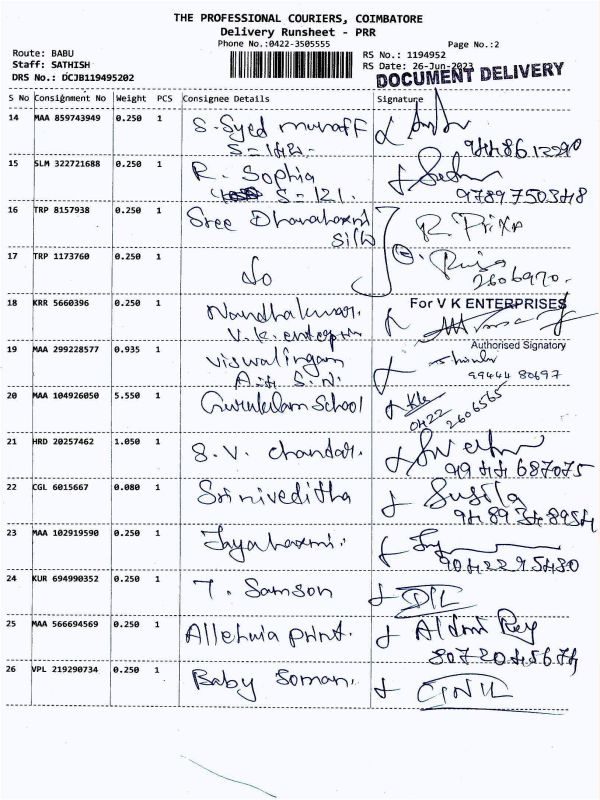 THE PROFESSIONAL COURIERS, COIMBATORE
Delivery Runsheet - PRR
Phone No.:0422-3505555
Page No.:2
Route: BABU
Staff: SATHISH
DRS No.: DCJB119495202
RS No.: 1194952
RS Date: 26-Jun-2023
DOCUMENT DELIVERY
S No Consignment No Weight PCS Consignee Details Signature
14 MAA 859743949 0.250 1 S. Syed munaff
S=142.
15 SLM 322721688 0.250 1 R. Sophia
S=121.
9789750348
16 TRP 8157938 0.250 1 Sree Dhanalaxmi R. Priya
Silks
17 TRP 1173760 0.250 1 Do
2606970.
18 KRR 5660396 0.250 1 Nandhakumar. For V K ENTERPRISES
V.K. enterprise
Authorised Signatory
19 MAA 299228577 0.935 1 Viswalingam
99444 80697
20 MAA 104926050 5.550 1 Gurukulam School
0422 2606565
21 HRD 20257462 1.050 1 S. V. chandar.
9944687075
22 CGL 6015667 0.080 1 Sriniveditha Susila
9489348954
23 MAA 102919590 0.250 1 Jayalaxmi.
9042295480
24 KUR 694990352 0.250 1 T. Samson
25 MAA 566694569 0.250 1 Alleluia print.
8072045674
26 VPL 219290734 0.250 1 Baby Soman.